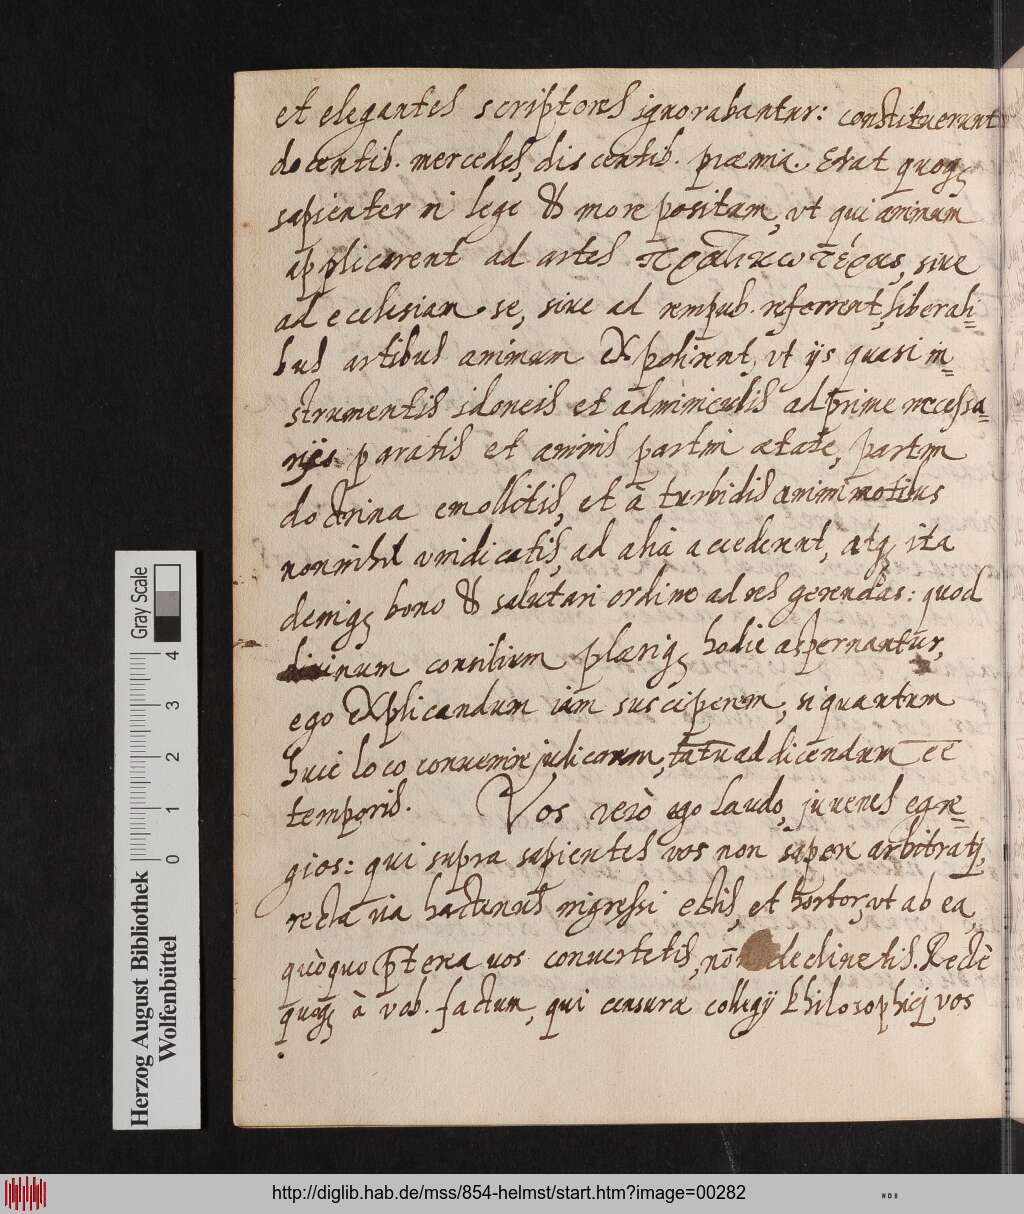 et elegantes scriptores ignorabantur: constituerunt
docentib. mercedes, discentib. præmia. Erat quoq;
sapienter in lege & more positum, vt qui animum
applicarent ad artes πρακτικωτέρας, siue
ad ecclesiam se, siue ad rempub. referrent, liberali=
bus artibus animum expolirent, vt ijs quasi in=
strumentis idoneis et adminiculis adprime necessa=
rijs paratis et animis partim ætate, partim
doctrina emollitis, et à turbidis animi motibus
nonnihil vindicatis, ad alia accederent, atq; ita
deniq; bono & salutari ordine ad res gerendas: quod
diuinum consilium pleriq; hodie aspernantur,
ego explicandum iam susciperem, si quantum
huic loco conuenire judicarem, tātū ad dicendum eēt
temporis. Vos verò ego laudo, juuenes egre=
gios: qui supra sapientes vos non sapere arbitratj,
recta via hactenus ingressi estis, et hortor, vt ab ea,
quòquo p̄terea vos conuertetis, nō declinetis. Rectè
quoq; à vob. factum, qui censuræ collegij philosophicj vos
Herzog August Bibliothek
Wolfenbüttel
Gray Scale
0 1 2 3 4
http://diglib.hab.de/mss/854-helmst/start.htm?image=00282